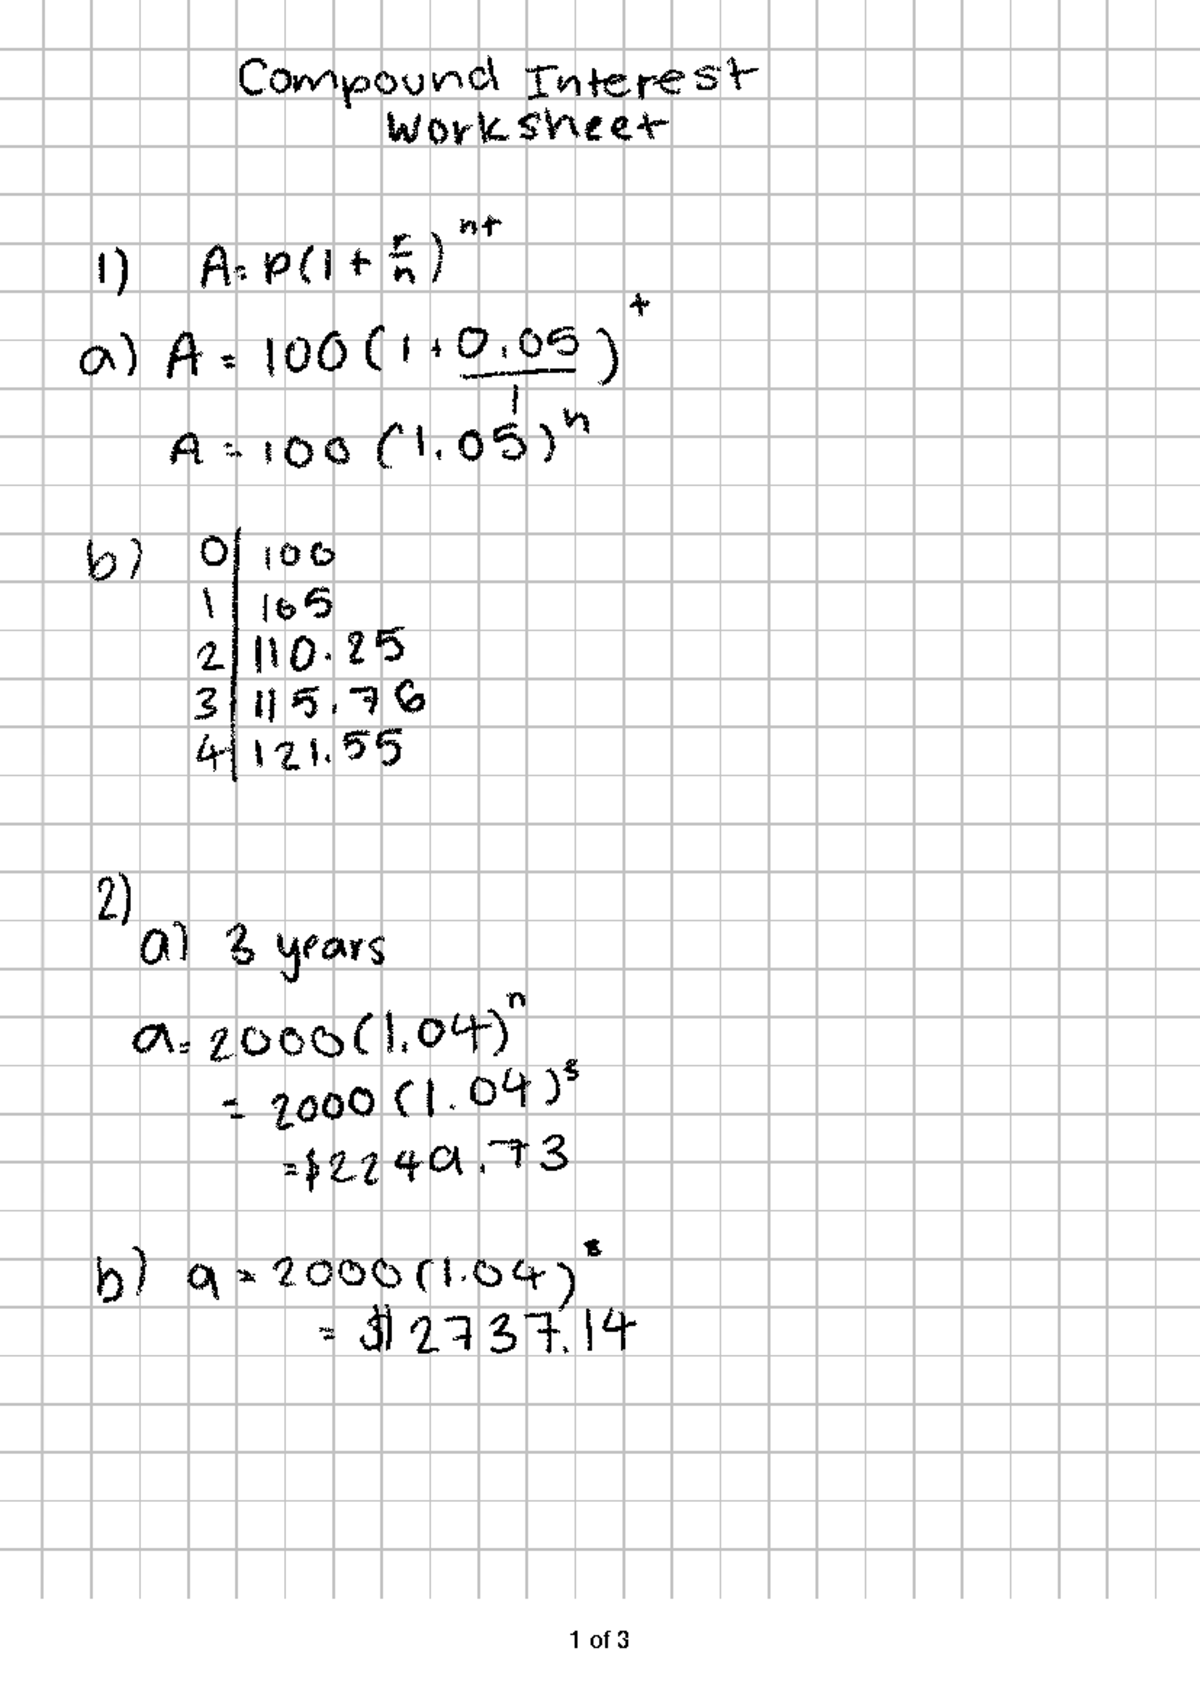 Compound Interest
Worksheet
1) A = P(1 + r/n)^nt
a) A = 100(1 + 0.05/1)^t
A = 100(1.05)^n
b) 0 | 100
1 | 105
2 | 110.25
3 | 115.76
4 | 121.55
2)
a) 3 years
a = 2000(1.04)^n
= 2000(1.04)^3
= $2249.73
b) a = 2000(1.04)^8
= $2737.14
1 of 3